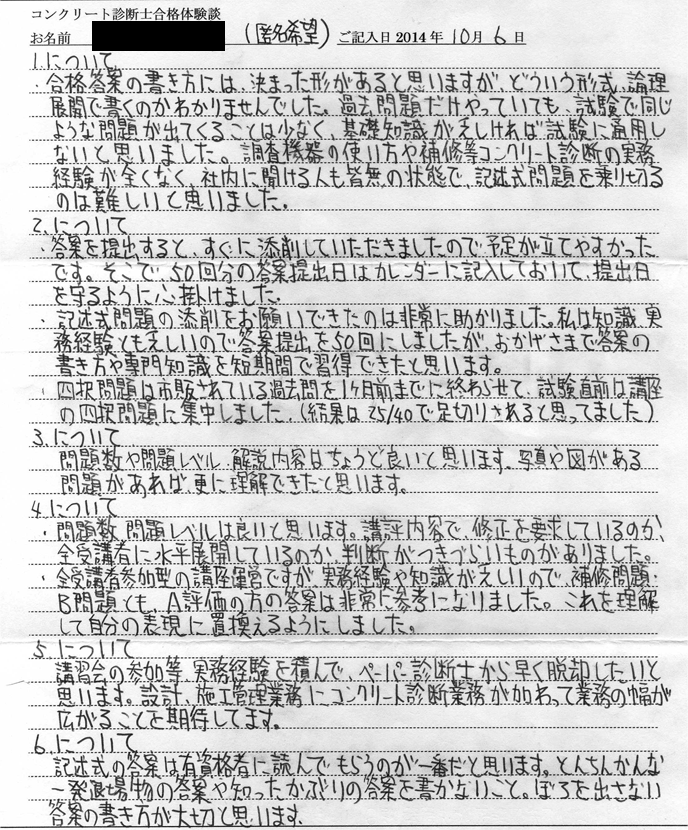 コンクリート診断士合格体験談
お名前 (匿名希望) ご記入日 2014 年 10 月 6 日
1.について
・合格答案の書き方には、決まった形があると思いますが、どういう形式、論理
展開で書くのかわかりませんでした。過去問題だけやっていても、試験で同じ
ような問題が出てくることは少なく、基礎知識が乏しければ試験に通用し
ないと思いました。調査機器の使い方や補修等コンクリート診断の実務
経験が全くなく、社内に聞ける人も皆無の状態で、記述式問題を乗り切る
のは難しいと思いました。
2.について
・答案を提出すると、すぐに添削していただきましたので予定が立てやすかった
です。そこで、50回分の答案提出日はカレンダーに記入しておいて、提出日
を守るように心掛けました。
・記述式問題の添削をお願いできたのは非常に助かりました。私は知識、実
務経験とも乏しいので答案提出を50回にしましたが、おかげさまで答案の
書き方や専門知識を短期間で習得できたと思います。
・四択問題は市販されている過去問を1ヶ月前までに終わらせて、試験直前は講座
の四択問題に集中しました。(結果は25/40で足切りされると思ってました)
3.について
問題数や問題レベル、解説内容はちょうど良いと思います。写真や図がある
問題があれば、更に理解できたと思います。
4.について
・問題数、問題レベルは良いと思います。講評内容で、修正を要求しているのか、
全受講者に水平展開しているのか、判断がつきづらいものがありました。
・全受講者参加型の講座運営ですが、実務経験や知識が乏しいので、補修問題・
B問題とも、A評価の方の答案は非常に参考になりました。これを理解
して自分の表現に置換えるようにしました。
5.について
講習会の参加等、実務経験を積んで、ペーパー診断士から早く脱却したいと
思います。設計、施工管理業務にコンクリート診断業務が加わって業務の幅が
広がることを期待してます。
6.について
記述式の答案は、有資格者に読んでもらうのが一番だと思います。とんちんかんな
一発退場物の答案や知ったかぶりの答案を書かないこと。ぼろを出さない
答案の書き方が大切と思います。